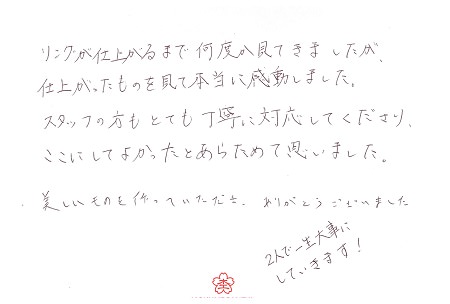 リングが仕上がるまで何度か見てきましたが、
仕上がったものを見て本当に感動しました。
スタッフの方もとても丁寧に対応してくださり、
ここにしてよかったとあらためて思いました。
美しいものを作っていただき、ありがとうございました
2人で一生大事に
していきます!